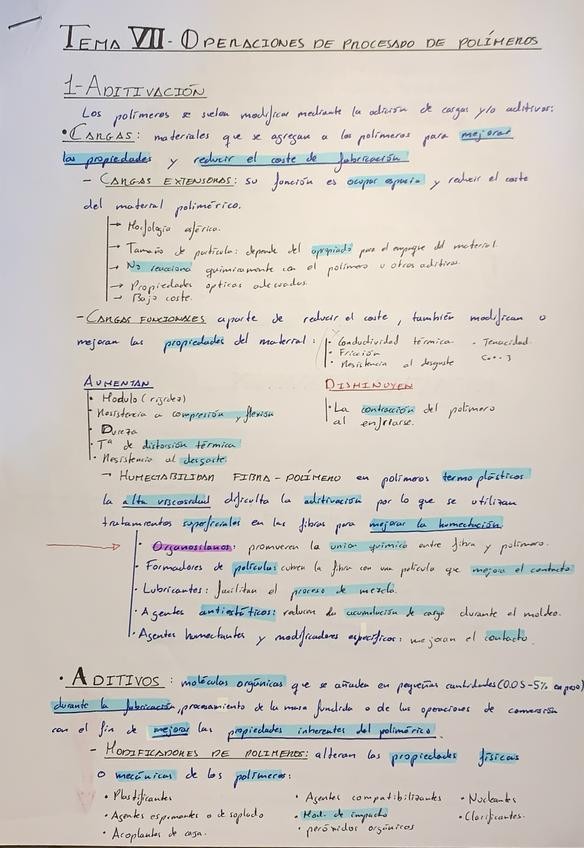 TEMA VII - OPERACIONES DE PROCESADO DE POLÍMEROS
1-ADITIVACIÓN
Los polímeros se suelen modificar mediante la adición de cargas y/o aditivos:
• CARGAS: materiales que se agregan a los polímeros para mejorar
las propiedades y reducir el coste de fabricación
- CARGAS EXTENSORAS: su función es ocupar espacio y reducir el coste
del material polimérico.
→ Morfología esférica.
→ Tamaño de partícula: depende del apropiado para el empaque del material.
→ No reacciona químicamente con el polímero u otros aditivos.
→ Propiedades ópticas adecuadas.
→ Bajo coste.
- CARGAS FUNCIONALES aparte de reducir el coste, también modifican o
mejoran las propiedades del material:
• Conductividad térmica - Tenacidad
• Fricción
• Resistencia al desgaste
AUMENTAN
• Modulo (rigidez)
• Resistencia a compresión y flexión
• Dureza
• Tª de distorsión térmica
• Resistencia al desgaste
DISMINUYEN
• La contracción del polímero
al enfriarse.
→ HUMECTABILIDAD FIBRA-POLÍMERO en polímeros termoplásticos
la alta viscosidad dificulta la aditivación por lo que se utilizan
tratamientos superficiales en las fibras para mejorar la humectación.
• Organosilanos: promueven la unión química entre fibra y polímero.
• Formadores de película: cubren la fibra con una película que mejora el contacto
• Lubricantes: facilitan el proceso de mezcla.
• Agentes antiestáticos: reducen su acumulación de carga durante el moldeo.
• Agentes humectantes y modificadores específicos: mejoran el contacto.
• ADITIVOS: moléculas orgánicas que se añaden en pequeñas cantidades (0.05-5% en peso)
durante la fabricación, procesamiento de la masa fundida o de las operaciones de conversión
con el fin de mejorar las propiedades inherentes del polimérico.
- MODIFICADORES DE POLIMEROS: alteran las propiedades físicas
o mecánicas de los polímeros:
• Plastificantes • Agentes compatibilizantes • Nucleantes
• Agentes espumantes o de soplado • Mod. de impacto • Clarificantes.
• Acoplantes de • peróxidos orgánicos